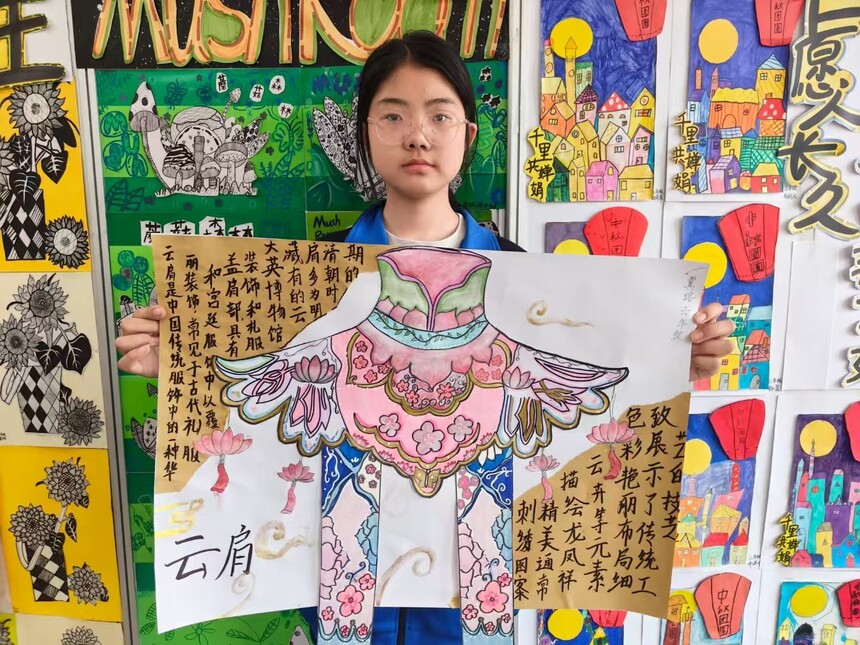 MUSHROOM
蘑菇森
Mush
云肩是中国传统服饰中的一种华
丽装饰,常见于古代礼服
和宫廷服饰中以覆
盖肩部,具有
装饰和礼服
大英博物馆
藏有的云
肩多为明
清朝时
期的
云肩
刺绣图案
精美通常
描绘龙凤祥
云卉等元素
色彩艳丽布局细
致展示了传统工
艺的技艺
千里
共婵娟
中秋团圆
千里
共婵娟
中秋团圆
愿人长久
中秋
中秋团圆
千里
共婵娟
中秋团圆